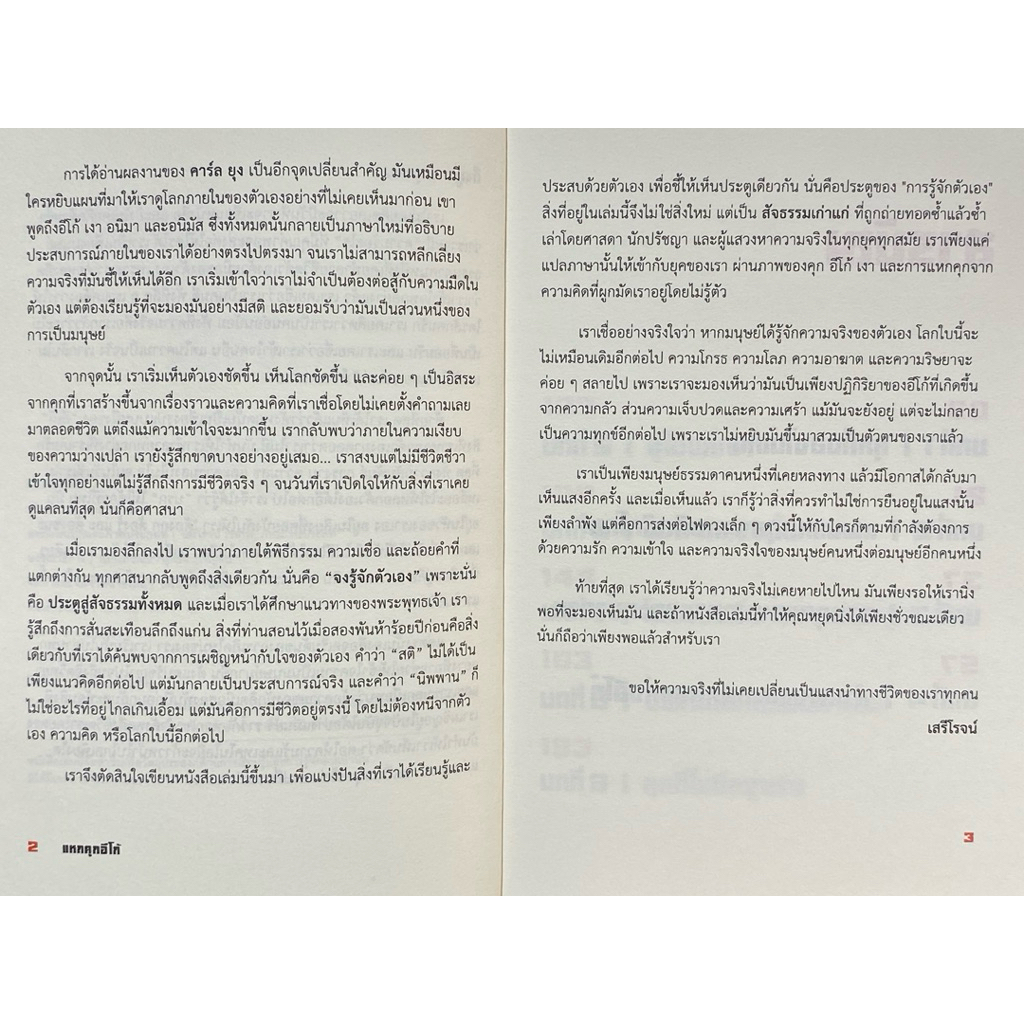 การได้อ่านผลงานของ คาร์ล ยุง เป็นอีกจุดเปลี่ยนสำคัญ มันเหมือนมี
ใครหยิบแผนที่มาให้เราดูโลกภายในของตัวเองอย่างที่ไม่เคยเห็นมาก่อน เขา
พูดถึงอีโก้ เงา อนิมา และอนิมัส ซึ่งทั้งหมดนั้นกลายเป็นภาษาใหม่ที่อธิบาย
ประสบการณ์ภายในของเราได้อย่างตรงไปตรงมา จนเราไม่สามารถหลีกเลี่ยง
ความจริงที่มันชี้ให้เห็นได้อีก เราเริ่มเข้าใจว่าเราไม่จำเป็นต้องต่อสู้กับความมืดใน
ตัวเอง แต่ต้องเรียนรู้ที่จะมองมันอย่างมีสติ และยอมรับว่ามันเป็นส่วนหนึ่งของ
การเป็นมนุษย์
จากจุดนั้น เราเริ่มเห็นตัวเองชัดขึ้น เห็นโลกชัดขึ้น และค่อย ๆ เป็นอิสระ
จากคุกที่เราสร้างขึ้นจากเรื่องราวและความคิดที่เราเชื่อโดยไม่เคยตั้งคำถามเลย
มาตลอดชีวิต แต่ถึงแม้ความเข้าใจจะมากขึ้น เรากลับพบว่าภายในความเงียบ
ของความว่างเปล่า เรายังรู้สึกขาดบางอย่างอยู่เสมอ... เราสงบแต่ไม่มีชีวิตชีวา
เข้าใจทุกอย่างแต่ไม่รู้สึกถึงการมีชีวิตจริง ๆ จนวันที่เราเปิดใจให้กับสิ่งที่เราเคย
ดูแคลนที่สุด นั่นก็คือศาสนา
เมื่อเรามองลึกลงไป เราพบว่าภายใต้พิธีกรรม ความเชื่อ และถ้อยคำที่
แตกต่างกัน ทุกศาสนากลับพูดถึงสิ่งเดียวกัน นั่นคือ “จงรู้จักตัวเอง” เพราะนั่น
คือ ประตูสู่สัจธรรมทั้งหมด และเมื่อเราได้ศึกษาแนวทางของพระพุทธเจ้า เรา
รู้สึกถึงการสั่นสะเทือนลึกถึงแก่น สิ่งที่ท่านสอนไว้เมื่อสองพันห้าร้อยปีก่อนคือสิ่ง
เดียวกับที่เราได้ค้นพบจากการเผชิญหน้ากับใจของตัวเอง คำว่า “สติ” ไม่ได้เป็น
เพียงแนวคิดอีกต่อไป แต่มันกลายเป็นประสบการณ์จริง และคำว่า “นิพพาน” ก็
ไม่ใช่อะไรที่อยู่ไกลเกินเอื้อม แต่มันคือการมีชีวิตอยู่ตรงนี้ โดยไม่ต้องหนีจากตัว
เอง ความคิด หรือโลกใบนี้อีกต่อไป
เราจึงตัดสินใจเขียนหนังสือเล่มนี้ขึ้นมา เพื่อแบ่งปันสิ่งที่เราได้เรียนรู้และ
2 แหกคุกอีโก้
ประสบด้วยตัวเอง เพื่อชี้ให้เห็นประตูเดียวกัน นั่นคือประตูของ "การรู้จักตัวเอง"
สิ่งที่อยู่ในเล่มนี้จึงไม่ใช่สิ่งใหม่ แต่เป็น สัจธรรมเก่าแก่ ที่ถูกถ่ายทอดซ้ำแล้วซ้ำ
เล่าโดยศาสดา นักปรัชญา และผู้แสวงหาความจริงในทุกยุคทุกสมัย เราเพียงแค่
แปลภาษานั้นให้เข้ากับยุคของเรา ผ่านภาพของคุก อีโก้ เงา และการแหกคุกจาก
ความคิดที่ผูกมัดเราอยู่โดยไม่รู้ตัว
เราเชื่ออย่างจริงใจว่า หากมนุษย์ได้รู้จักความจริงของตัวเอง โลกใบนี้จะ
ไม่เหมือนเดิมอีกต่อไป ความโกรธ ความโลภ ความอาฆาต และความริษยาจะ
ค่อย ๆ สลายไป เพราะเราจะมองเห็นว่ามันเป็นเพียงปฏิกิริยาของอีโก้ที่เกิดขึ้น
จากความกลัว ส่วนความเจ็บปวดและความเศร้า แม้มันจะยังอยู่ แต่จะไม่กลาย
เป็นความทุกข์อีกต่อไป เพราะเราไม่หยิบมันขึ้นมาสวมเป็นตัวตนของเราแล้ว
เราเป็นเพียงมนุษย์ธรรมดาคนหนึ่งที่เคยหลงทาง แล้วมีโอกาสได้กลับมา
เห็นแสงอีกครั้ง และเมื่อเห็นแล้ว เราก็รู้ว่าสิ่งที่ควรทำไม่ใช่การยืนอยู่ในแสงนั้น
เพียงลำพัง แต่คือการส่งต่อไฟดวงเล็ก ๆ ดวงนี้ให้กับใครก็ตามที่กำลังต้องการ
ด้วยความรัก ความเข้าใจ และความจริงใจของมนุษย์คนหนึ่งต่อมนุษย์อีกคนหนึ่ง
ท้ายที่สุด เราได้เรียนรู้ว่าความจริงไม่เคยหายไปไหน มันเพียงรอให้เรานิ่ง
พอที่จะมองเห็นมัน และถ้าหนังสือเล่มนี้ทำให้คุณหยุดนิ่งได้เพียงชั่วขณะเดียว
นั่นก็ถือว่าเพียงพอแล้วสำหรับเรา
ขอให้ความจริงที่ไม่เคยเปลี่ยนเป็นแสงนำทางชีวิตของเราทุกคน
เสรีโรจน์
3